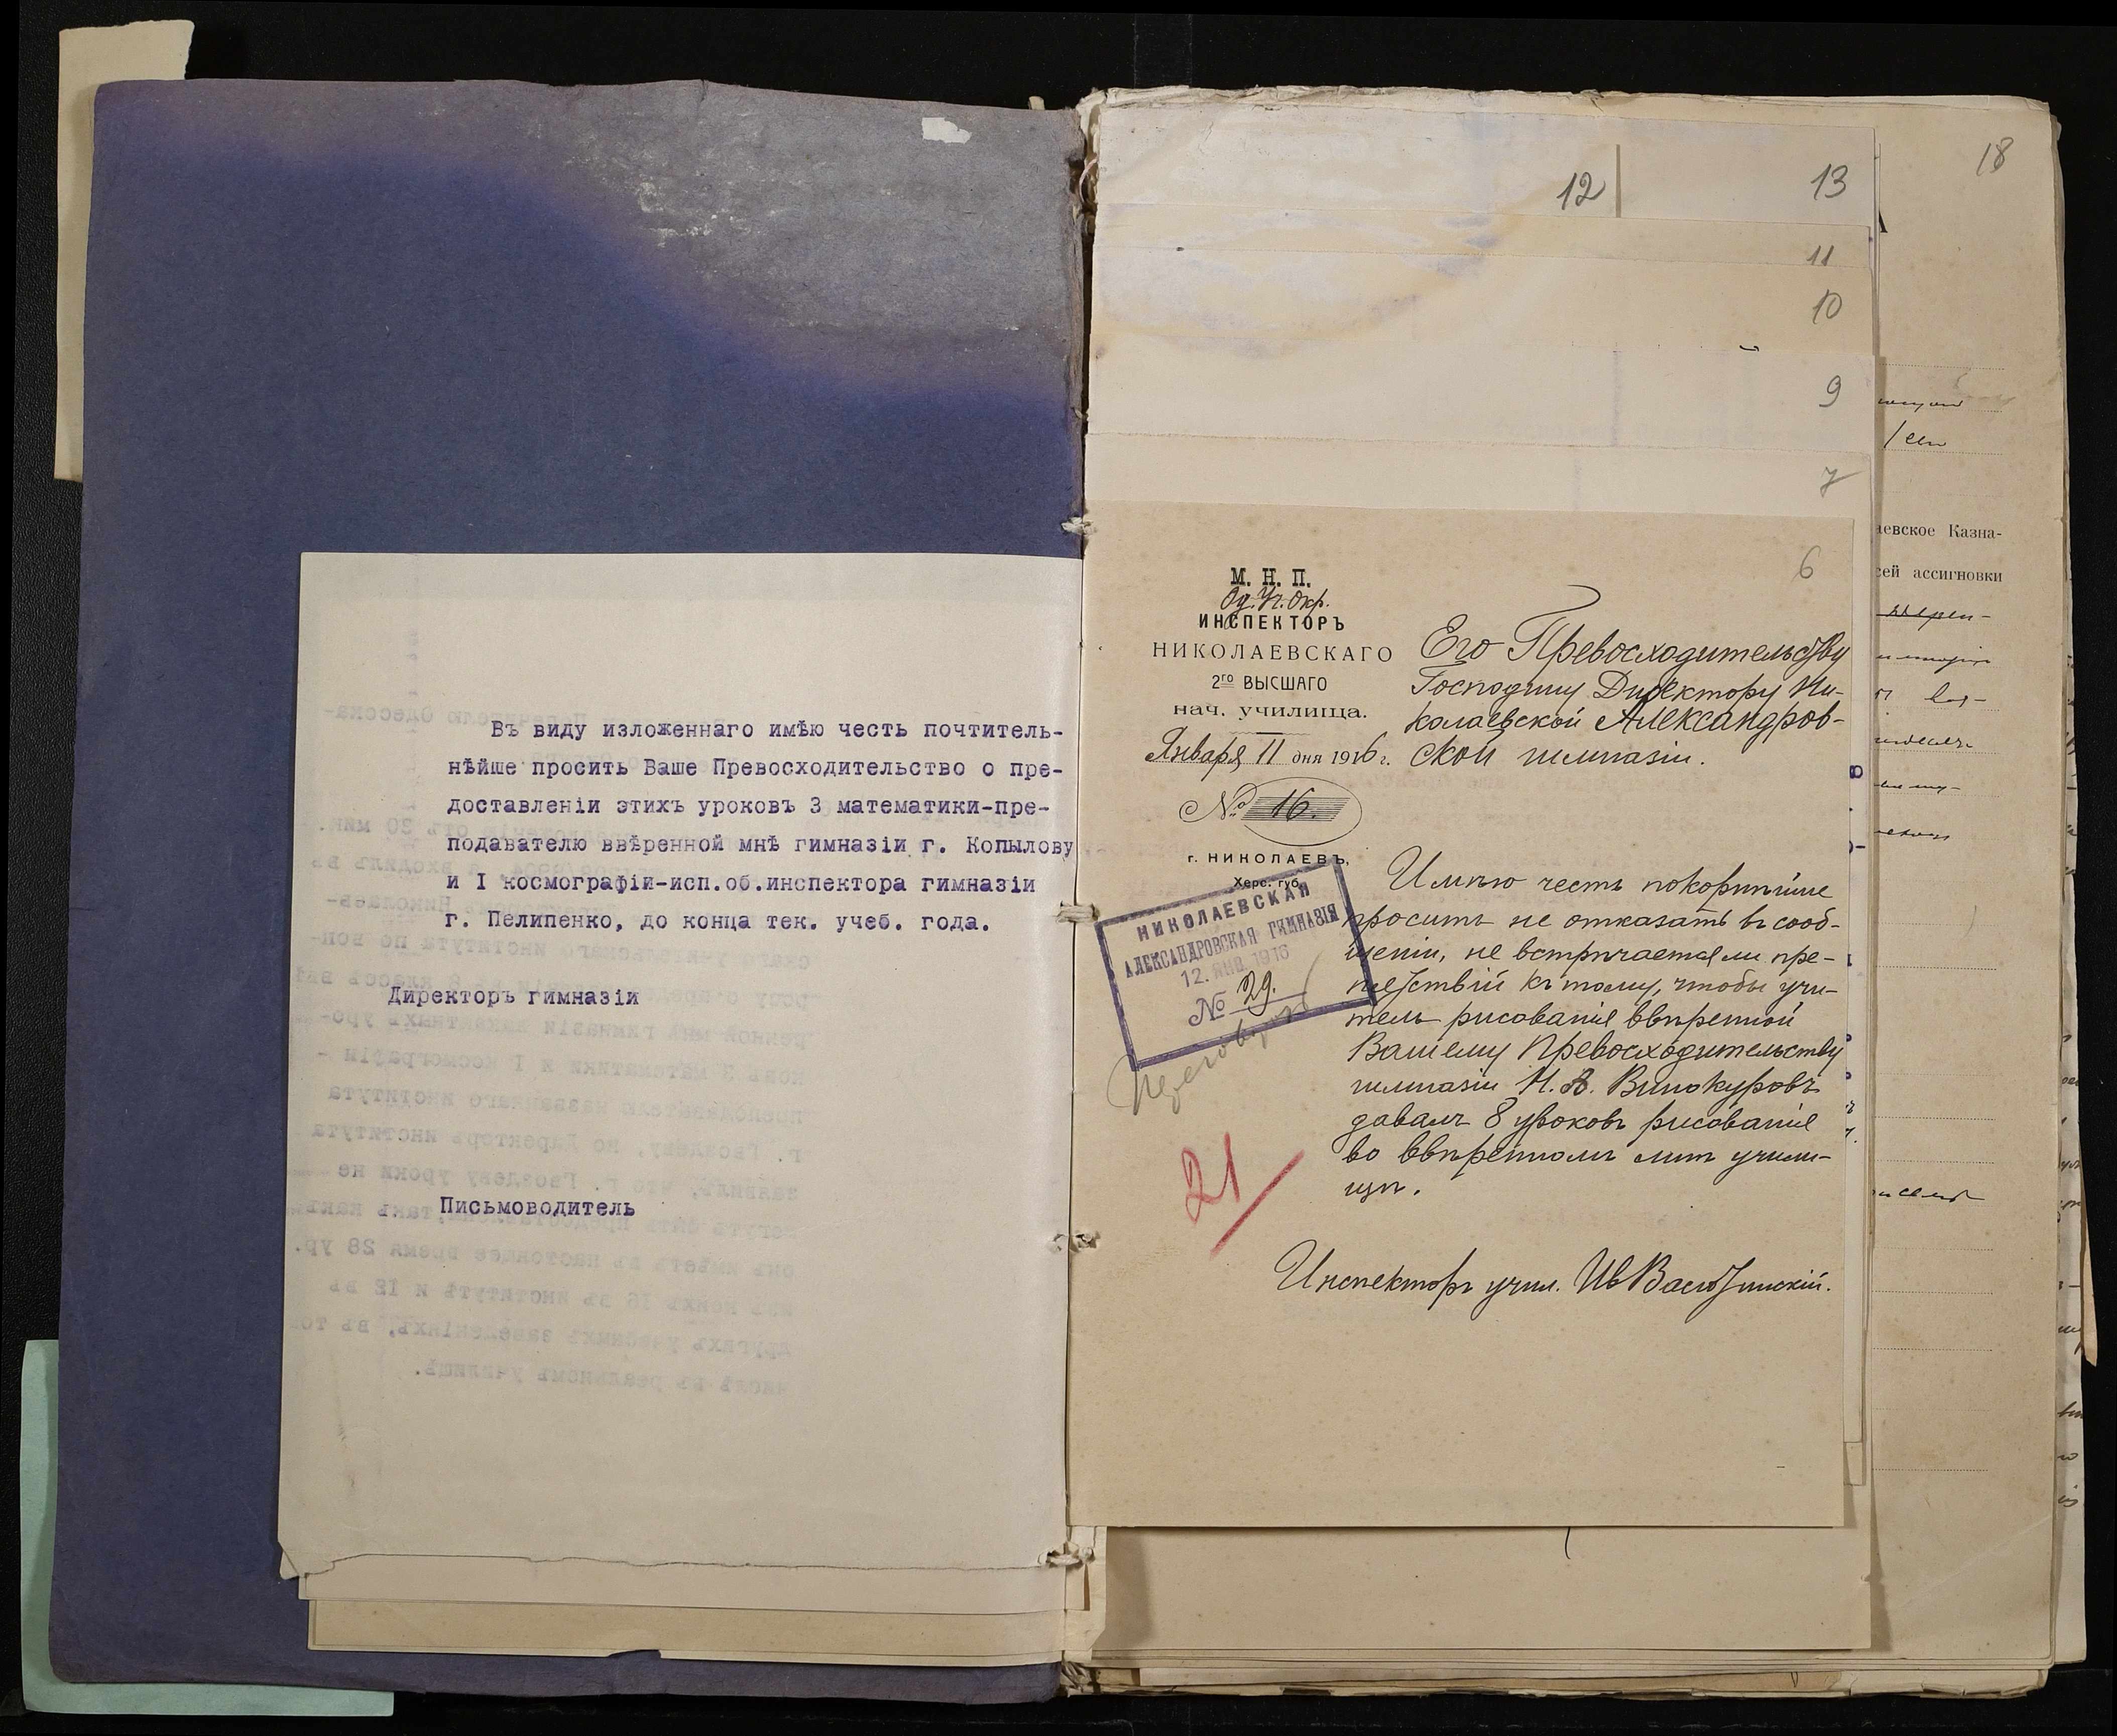 Въ виду изложеннаго имѣю честь почтитель-
нѣйше просить Ваше Превосходительство о пре-
доставленіи этихъ уроковъ 3 математики-пре-
подавателю ввѣренной мнѣ гимназіи г. Копылову
и I космографіи-исп.об.инспектора гимназіи
г. Пелипенко, до конца тек. учеб. года.
Директоръ гимназіи
Письмоводитель
12
13
11
10
9
7
6
М. Н. П.
Од. Уч. Окр.
ИНСПЕКТОРЪ
НИКОЛАЕВСКАГО
2го ВЫСШАГО
нач. училища.
Января 11 дня 1916 г.
№ 16.
г. НИКОЛАЕВЪ,
Херс. губ.
НИКОЛАЕВСКАЯ
АЛЕКСАНДРОВСКАЯ ГИМНАЗІЯ
12. ЯНВ 1916
№ 29.
21
Его Превосходительству
Господину Директору Ни-
колаевской Александров-
ской гимназіи.
Имѣю честь покорнѣйше
просить не отказать въ сооб-
щеніи, не встрѣчается ли пре-
пятствій къ тому, чтобы учи-
тель рисованія ввѣренной
Вашему Превосходительству
гимназіи Н. В. Винокуровъ
давалъ 8 уроковъ рисованія
во ввѣренномъ мнѣ учили-
щѣ.
Инспекторъ учил. Ив
18
аевское Казна-
сей ассигновки